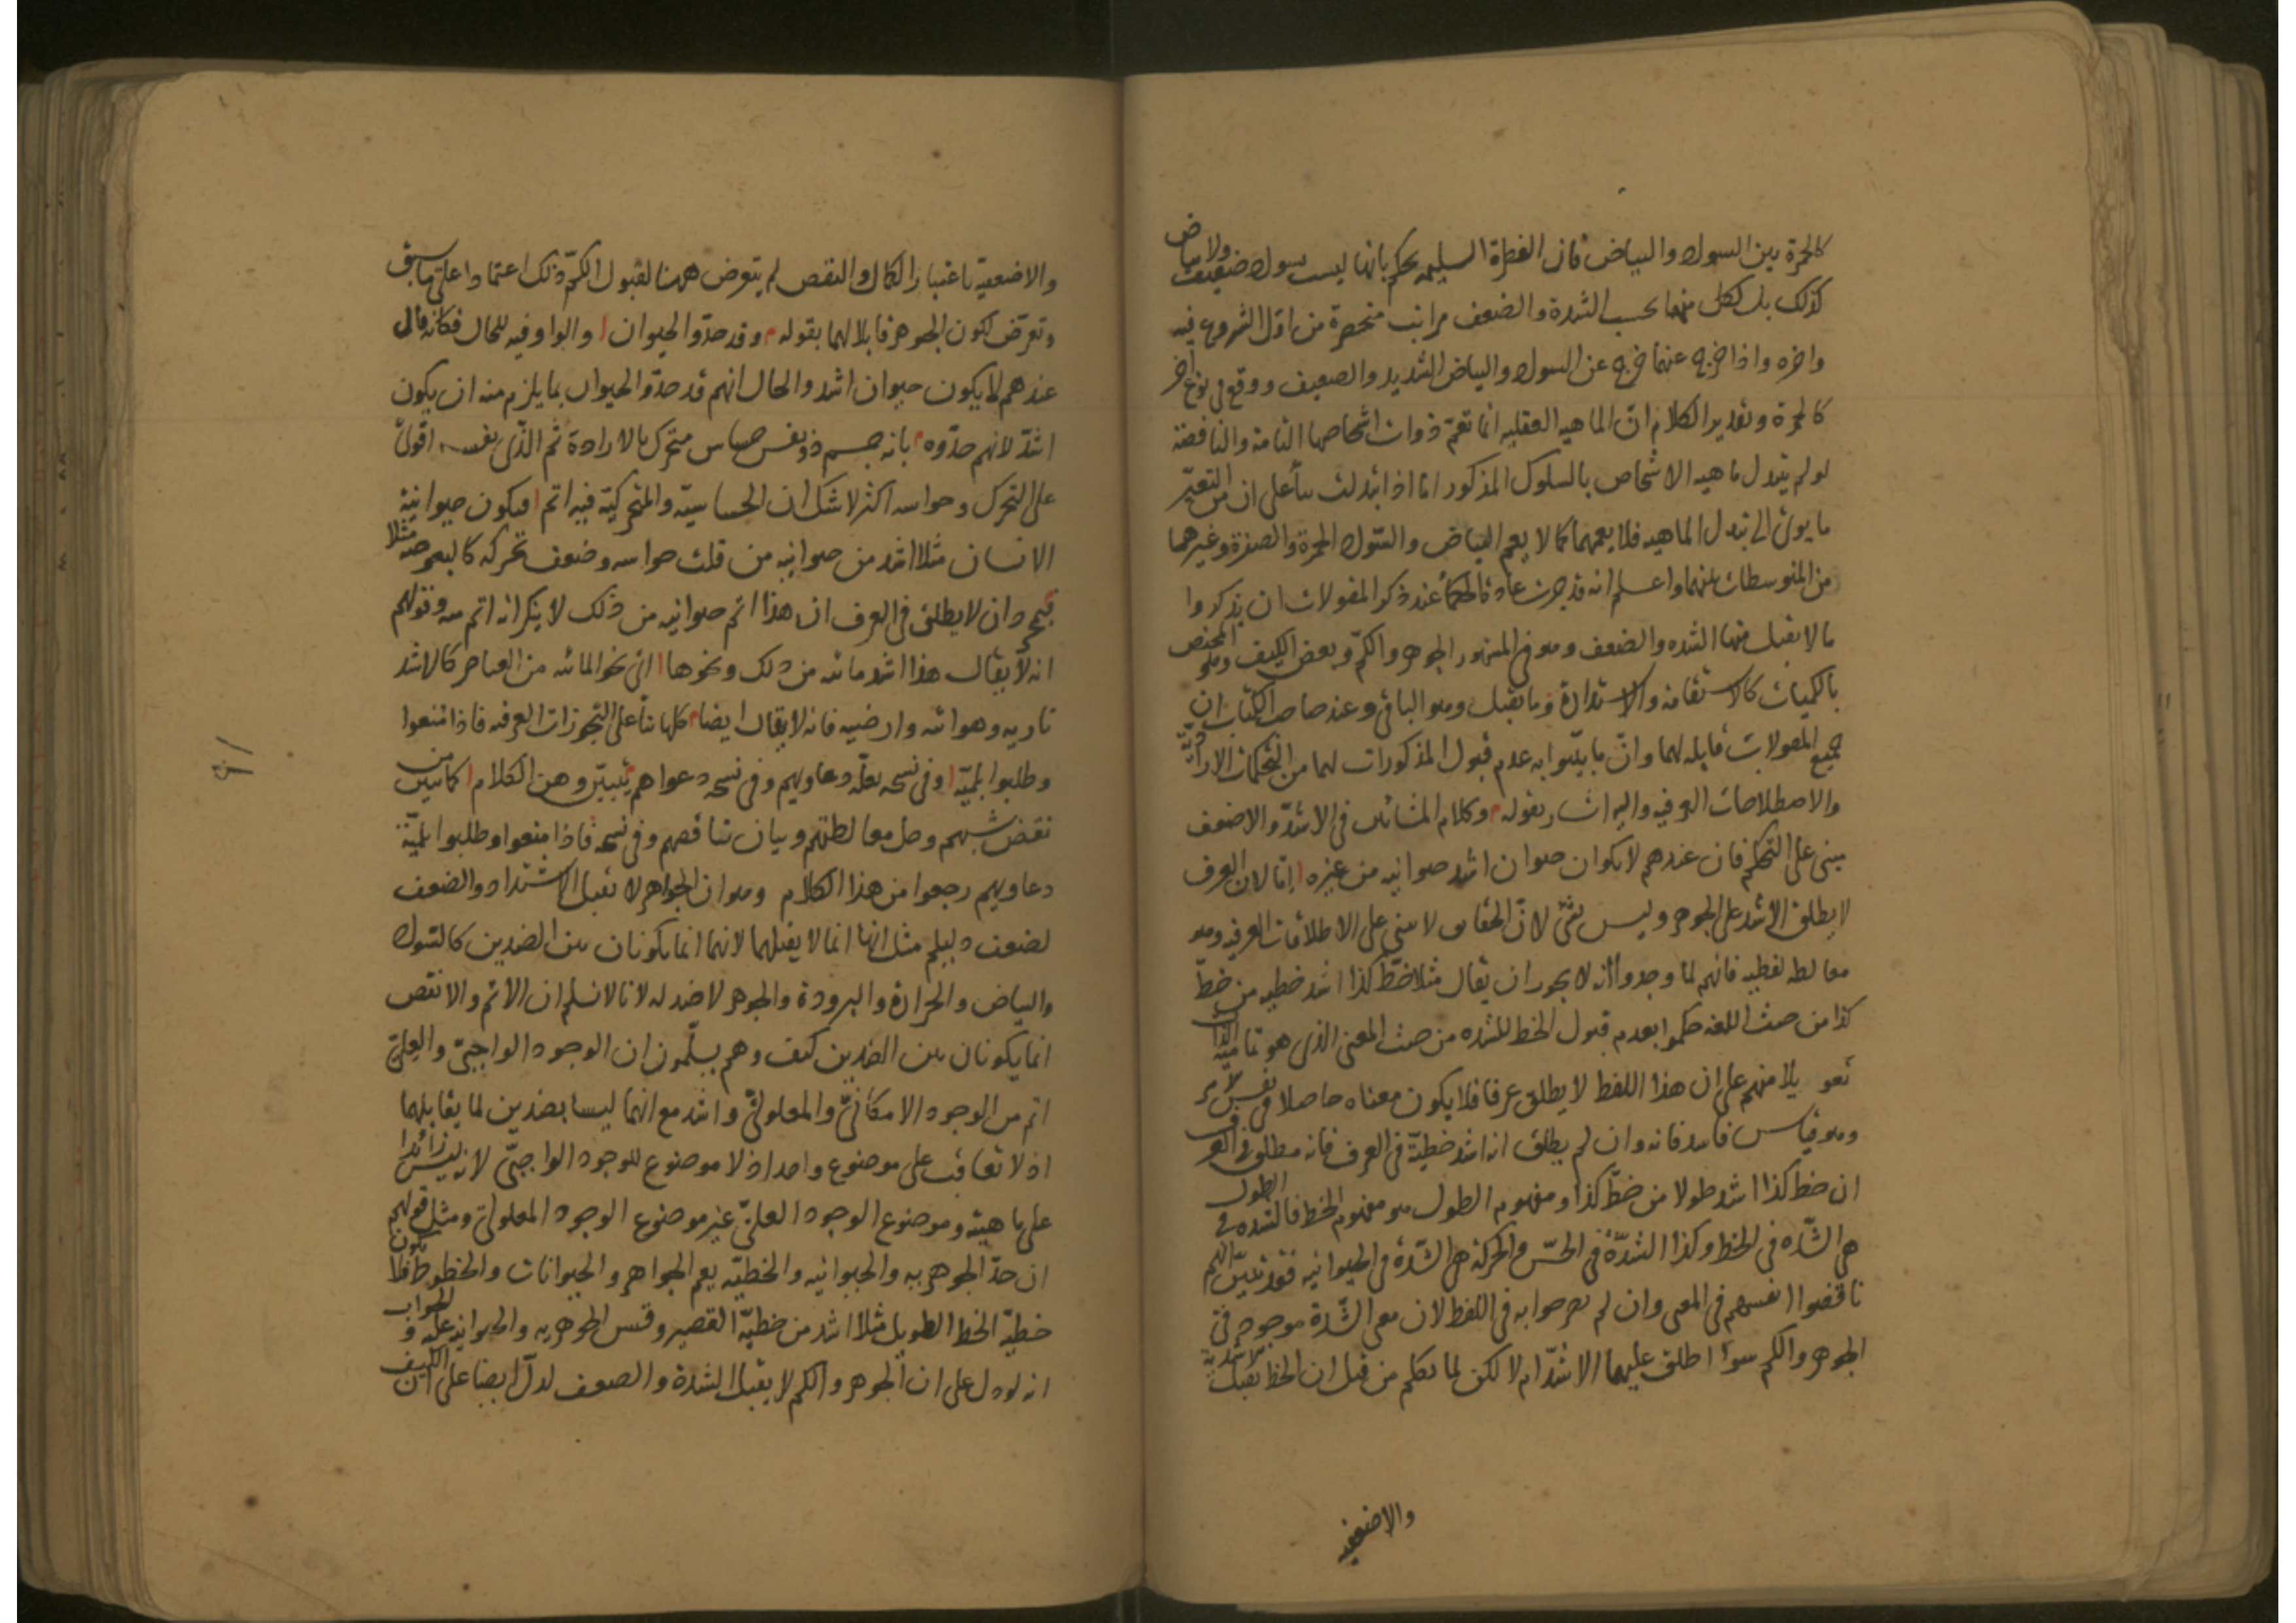 كالحمرة بين السواد والبياض فان الفطرة السليمة يحكم بانها ليست بسواد ضعيف ولا بياض
كذلك بل لكل منهما بحسب الشدة والضعف مراتب منحصرة من اول الشروع فيه
واخره واذا خرج عنهما خرج عن السواد والبياض الشديد والضعيف ووقع في نوع اخر
كالحمرة وتقدير الكلام ان الماهيه العقليه انما تعم ذوات اشخاصها التامة والناقصة
لو لم يتبدل ماهيه الاشخاص بالسلوك المذكور اما اذا تبدلت بناً على ان من التغير
ما يودى الى تبدل الماهيه فلا يعمهما كما لا يعم البياض والسواد الحمرة والصفرة وغيرهما
من المتوسطات بينهما واعلم انه قد جرت عادة الحكماً عند ذكر المقولات ان يذكروا
ما لا يقبل منها الشده والضعف وهو في المشهور الجوهر والكم وبعض الكيف وهو المختص
بالكميات كالاستقامة والاستدارة وما يقبل وهو الباقي وعند صاحب الكتاب ان
جميع المقولات قابله لهما وان ما بينوا به عدم قبول المذكورات لهما من التحكمات
والاصطلاحات العرفيه واليه اشار بقوله وكلام المشائين في الاشد والاضعف
مبنى على التحكم فان عندهم لا يكون حيوان اشد حيوانيه من غيره اما لان العرف
لا يطلق الاشد على الجوهر وليس بشئ لان الحقايق لا يبنى على الاطلاقات العرفيه وهو
مغالطه لفظيه فانهم لما وجدوا انه لا يجوز ان يقال مثلا خط كذا اشد خطيه من خط
كذا من حيث اللغه حكموا بعدم قبول الخط للشده من حيث المعنى الذى هو تماميه الذات
تعويلا منهم على ان هذا اللفظ لا يطلق عرفا فلا يكون معناه حاصلا في نفس الامر
وهو قياس فاسد فانه وان لم يطلق انه اشد خطيّة في العرف فانه مطلق في العرف
ان خط كذا اشد طولا من خط كذا ومفهوم الطول هو مفهوم الخط فالشده في الطول
هى الشده في الخط وكذا الشدّة في الحسّ والحركة هى الشدّة في الحيوانيه فقد تبيّن انهم
ناقضوا انفسهم في المعنى وان لم يصرحوا به في اللفظ لان معنى الشدة موجود في
الجوهر والكم سواً اطلق عليهما الاشدّ ام لا لكن لما تكلم من قبل ان الخط يقبل الاشدية
والاضعفيه
والاضعفيّة باعتبار الكمال والنقص لم يتعرض ههنا لقبول الكمّ ذلك اعتمادا على ما سبق
وتعرّض لكون الجوهر قابلا لهما بقوله وقد حدّوا الحيوان والواو فيه للحال فكانه قال
عندهم لا يكون حيوان اشد والحال انهم قد حدّوا الحيوان بما يلزم منه ان يكون
اشدّ لانهم حدّوه بانه جسم ذو نفس حساس متحرك بالارادة ثم الذى نفسه اقوى
على التحرك وحواسه اكثر لا شك ان الحساسيّة والمتحركيّة فيه اتم فيكون حيوانية
الانسان مثلا اشد من حيوانيه من قلت حواسه وضعف تحركه كالبعوضه مثلا
فبمجرد ان لا يطلق في العرف ان هذا اتم حيوانيه من ذلك لا ينكر انه اتم منه وقولهم
انه لا يقال هذا اشد مائيه من ذلك ونحوها اى نحو المائيه من العناصر كالاشد
ناريه وهوائيه وارضيه فانه لا يقال ايضا كلها بناً على التجوزات العرفيه فاذا منعوا
وطلبوا بلميّة وفى نسخه بعلّة دعاويهم وفى نسخه دعواهم تبيّن وهن الكلام كما تبين من
نقض شبههم وحل مغالطتهم وبيان تناقضهم وفى نسخة فاذا منعوا وطلبوا بلميّة
دعاويهم رجعوا من هذا الكلام وهو ان الجواهر لا تقبل الاشتداد والضعف
لضعف دليلهم مثل انها انما لا يقبلهما لانهما انما يكونان بين الضدين كالسواد
والبياض والحرارة والبرودة والجوهر لا ضد له لانا لا نسلم ان الاتم والانقص
انما يكونان بين الضدين كيف وهم يسلّمون ان الوجود الواجبىّ والعلىّ
اتم من الوجود الامكانىّ والمعلولىّ واشد مع انهما ليسا بضدين لما يقابلهما
اذ لا تعاقب على موضوع واحد اذ لا موضوع للوجود الواجبىّ لانه ليس زائدا
على ماهية وموضوع الوجود العلىّ غير موضوع الوجود المعلولى ومثل قولهم
ان حدّ الجوهريه والحيوانيه والخطيّه يعم الجواهر والحيوانات والخطوط فلا يكون
خطيّة الخط الطويل مثلا اشد من خطيّة القصير وقس الجوهريه والحيوانيه عليه والجواب
انه لو دل على ان الجوهر والكم لا يقبل الشدة والضعف لدل ايضا على ان الكيف